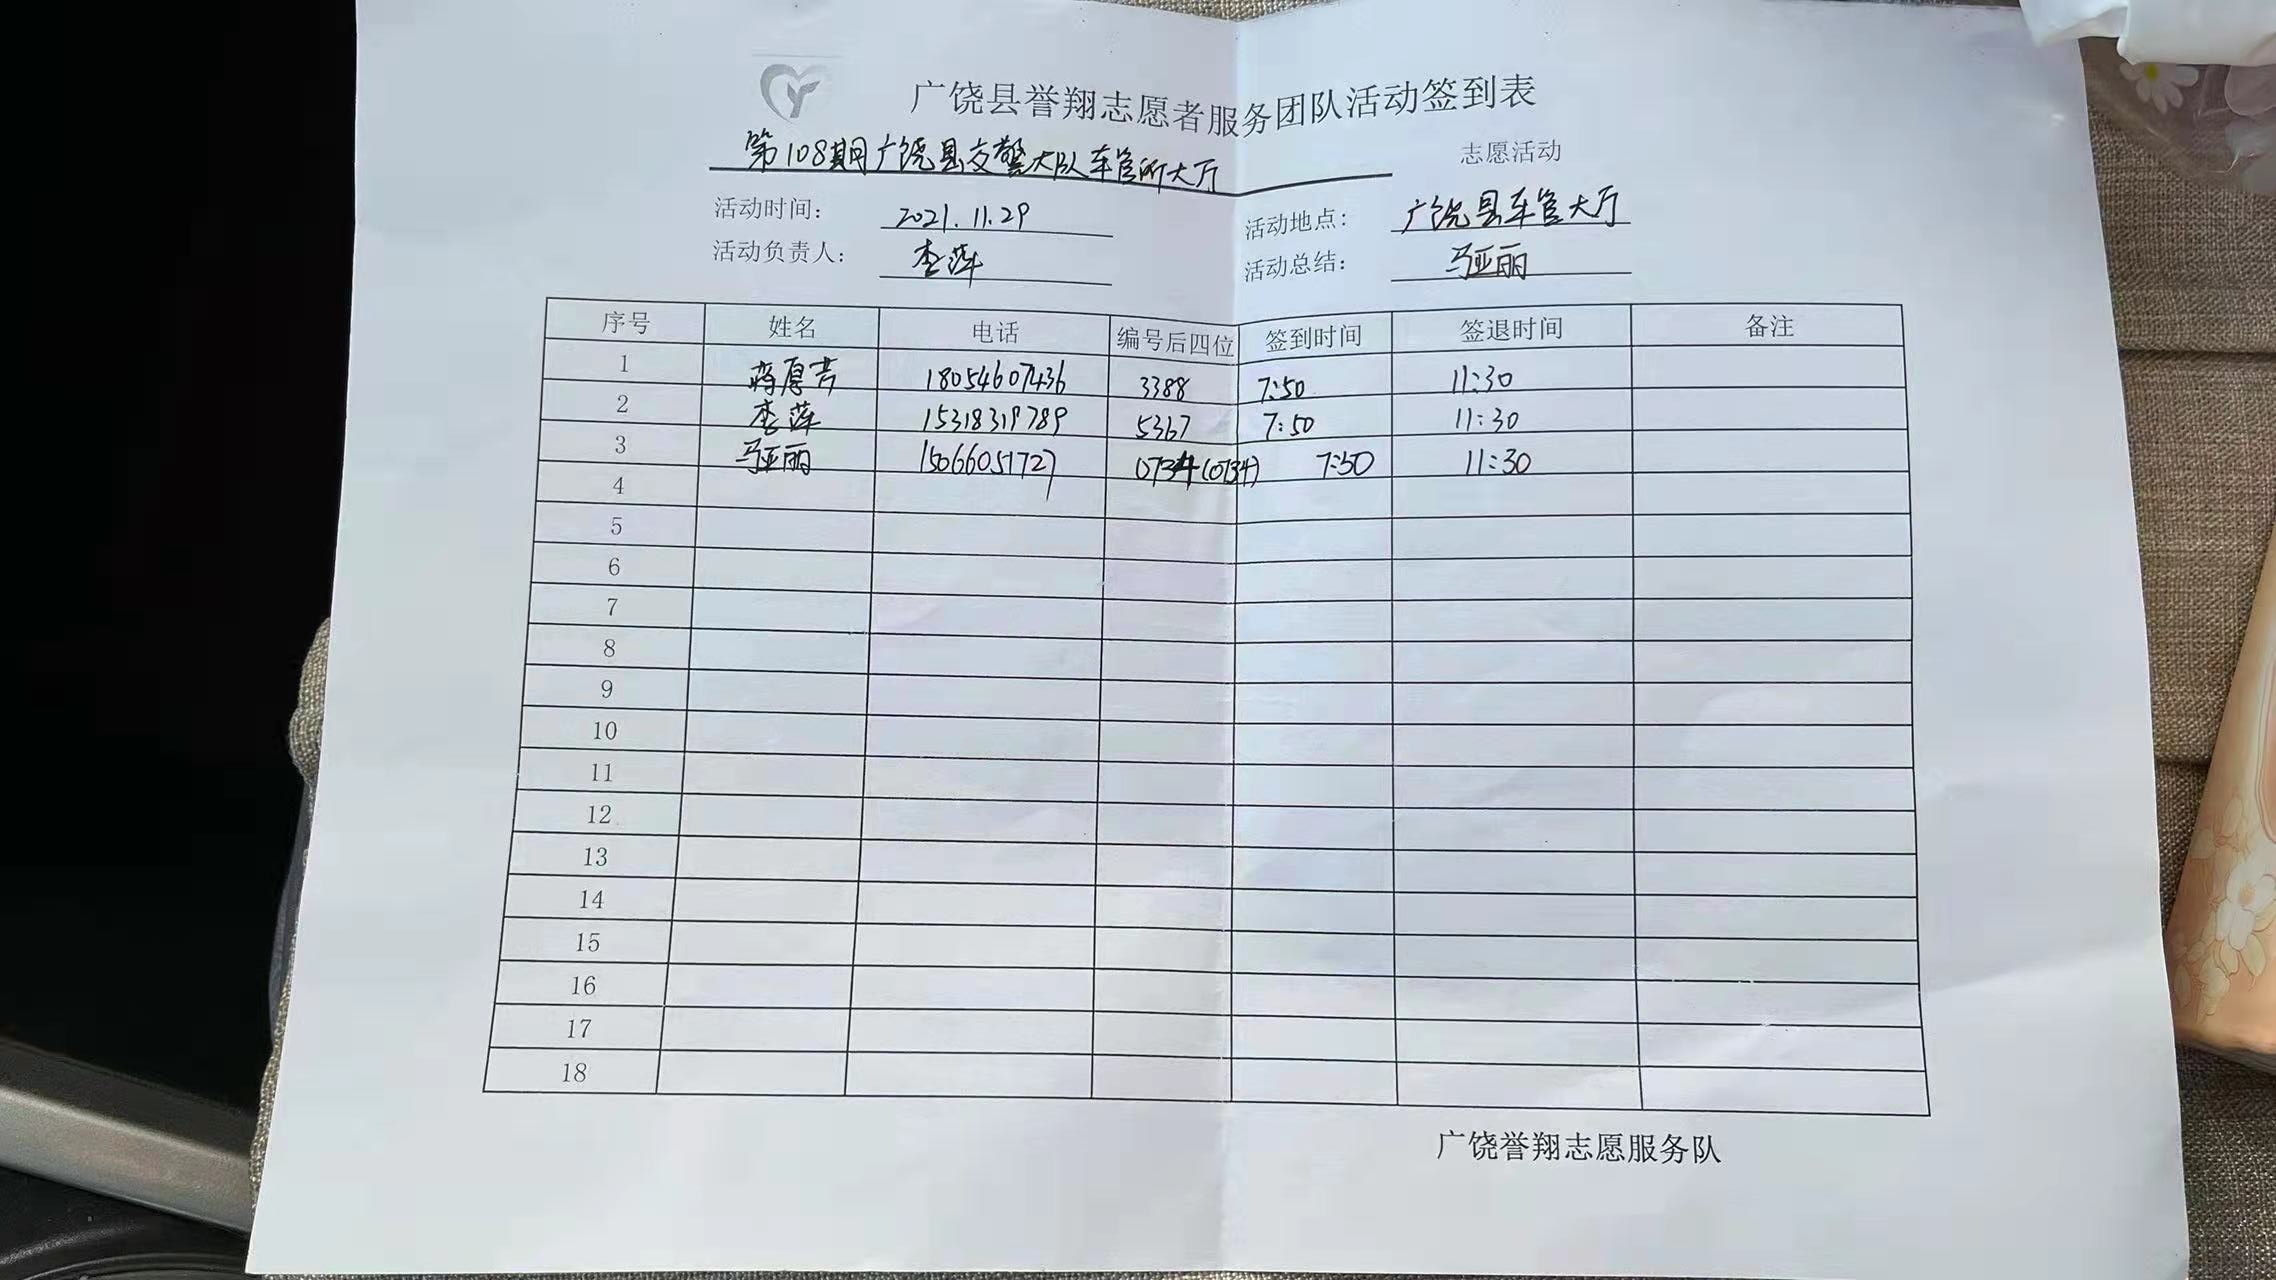 广饶县誉翔志愿者服务团队活动签到表
第108期广饶县交警大队车管所大厅 志愿活动
活动时间: 2021.11.29 活动地点: 广饶县车管大厅
活动负责人: 李萍 活动总结: 马亚丽
序号 姓名 电话 编号后四位 签到时间 签退时间 备注
1 蒋厚吉 18054607436 3388 7:50 11:30
2 李萍 15318319789 5367 7:50 11:30
3 马亚丽 15066051727 0734(0734) 7:50 11:30
4
5
6
7
8
9
10
11
12
13
14
15
16
17
18
广饶誉翔志愿服务队